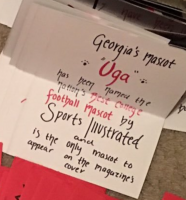 Georgia's mascot
"Uga"
has been named the
nation's most famous
football mascot by
Sports Illustrated
and
is the only mascot to
appear on the magazine's
cover